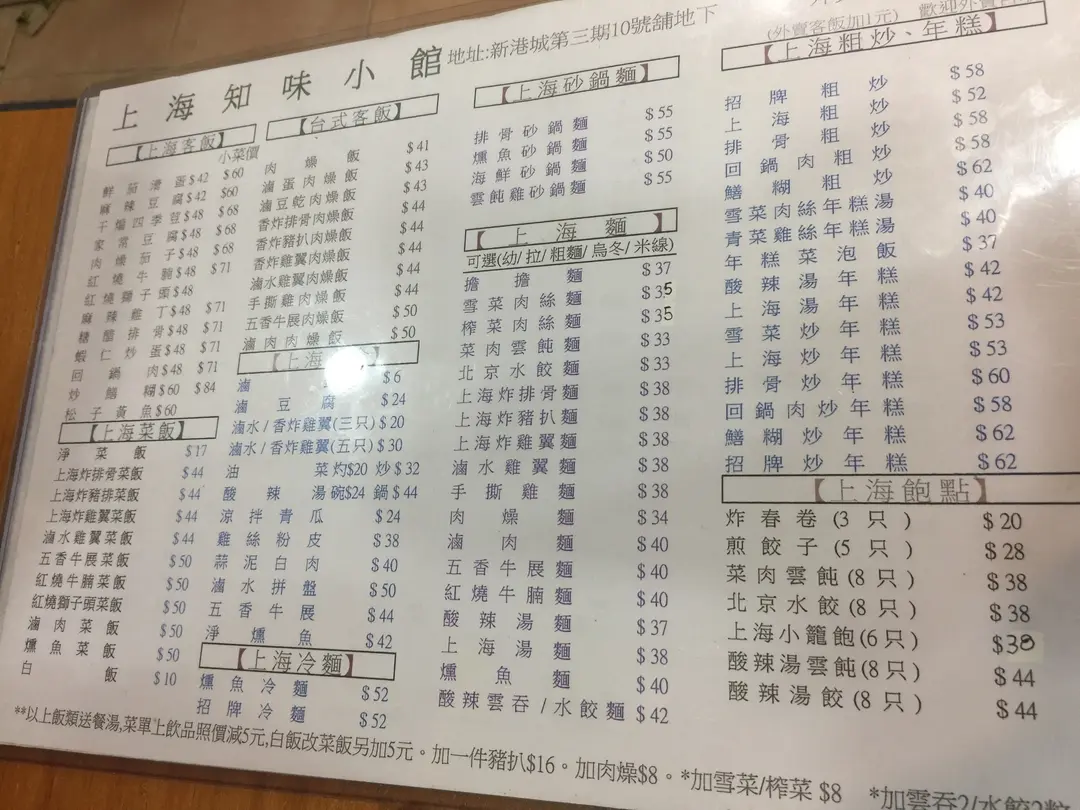 上海知味小館
地址:新港城第三期10號舖地下
【上海客飯】
小菜價
鮮茄滑蛋 $42 $60
麻辣豆腐 $42 $60
干煸四季荳 $48 $68
家常豆腐 $48 $68
肉燥茄子 $48 $68
紅燒牛腩 $48 $71
紅燒獅子頭 $48
麻辣雞丁 $48 $71
糖醋排骨 $48 $71
蝦仁炒蛋 $48 $71
回鍋肉 $48 $71
炒鱔糊 $60 $84
松子黃魚 $60
【上海菜飯】
淨菜飯 $17
上海炸排骨菜飯 $44
上海炸豬排菜飯 $44
上海炸雞翼菜飯 $44
滷水雞翼菜飯 $44
五香牛展菜飯 $50
紅燒牛腩菜飯 $50
紅燒獅子頭菜飯 $50
滷肉菜飯 $50
燻魚菜飯 $50
白飯 $10
【台式客飯】
肉燥飯 $41
滷蛋肉燥飯 $43
滷豆乾肉燥飯 $43
香炸排骨肉燥飯 $44
香炸豬扒肉燥飯 $44
香炸雞翼肉燥飯 $44
滷水雞翼肉燥飯 $44
手撕雞肉燥飯 $44
五香牛展肉燥飯 $50
滷肉肉燥飯 $50
【上海
滷 $6
滷豆腐 $24
滷水/香炸雞翼(三只) $20
滷水/香炸雞翼(五只) $30
油菜 灼$20 炒$32
酸辣湯 碗$24 鍋$44
涼拌青瓜 $24
雞絲粉皮 $38
蒜泥白肉 $40
滷水拼盤 $50
五香牛展 $44
淨燻魚 $42
【上海冷麵】
燻魚冷麵 $52
招牌冷麵 $52
【上海砂鍋麵】
排骨砂鍋麵 $55
燻魚砂鍋麵 $55
海鮮砂鍋麵 $50
雲飩雞砂鍋麵 $55
【上海麵】
可選(幼/拉/粗麵/烏冬/米線)
擔擔麵 $37
雪菜肉絲麵 $35
榨菜肉絲麵 $35
菜肉雲飩麵 $33
北京水餃麵 $33
上海炸排骨麵 $38
上海炸豬扒麵 $38
上海炸雞翼麵 $38
滷水雞翼麵 $38
手撕雞麵 $38
肉燥麵 $34
滷肉麵 $40
五香牛展麵 $40
紅燒牛腩麵 $40
酸辣湯麵 $37
上海湯麵 $38
燻魚麵 $40
酸辣雲吞/水餃麵 $42
(外賣客飯加1元) 歡迎外賣
【上海粗炒、年糕】
招牌粗炒 $58
上海粗炒 $52
排骨粗炒 $58
回鍋肉粗炒 $58
鱔糊粗炒 $62
雪菜肉絲年糕湯 $40
青菜雞絲年糕湯 $40
年糕菜泡飯 $37
酸辣湯年糕 $42
雪菜炒年糕 $42
上海炒年糕 $53
排骨炒年糕 $53
回鍋肉炒年糕 $60
鱔糊炒年糕 $58
招牌炒年糕 $62
$62
【上海飽點】
炸春卷(3只) $20
煎餃子(5只) $28
菜肉雲飩(8只) $38
北京水餃(8只) $38
上海小籠飽(6只) $38
酸辣湯雲飩(8只) $44
酸辣湯餃(8只) $44
**以上飯類送餐湯,菜單上飲品照價減5元,白飯改菜飯另加5元。加一件豬扒$16。加肉燥$8。*加雪菜/榨菜 $8 *加雲吞2/水餃2粒